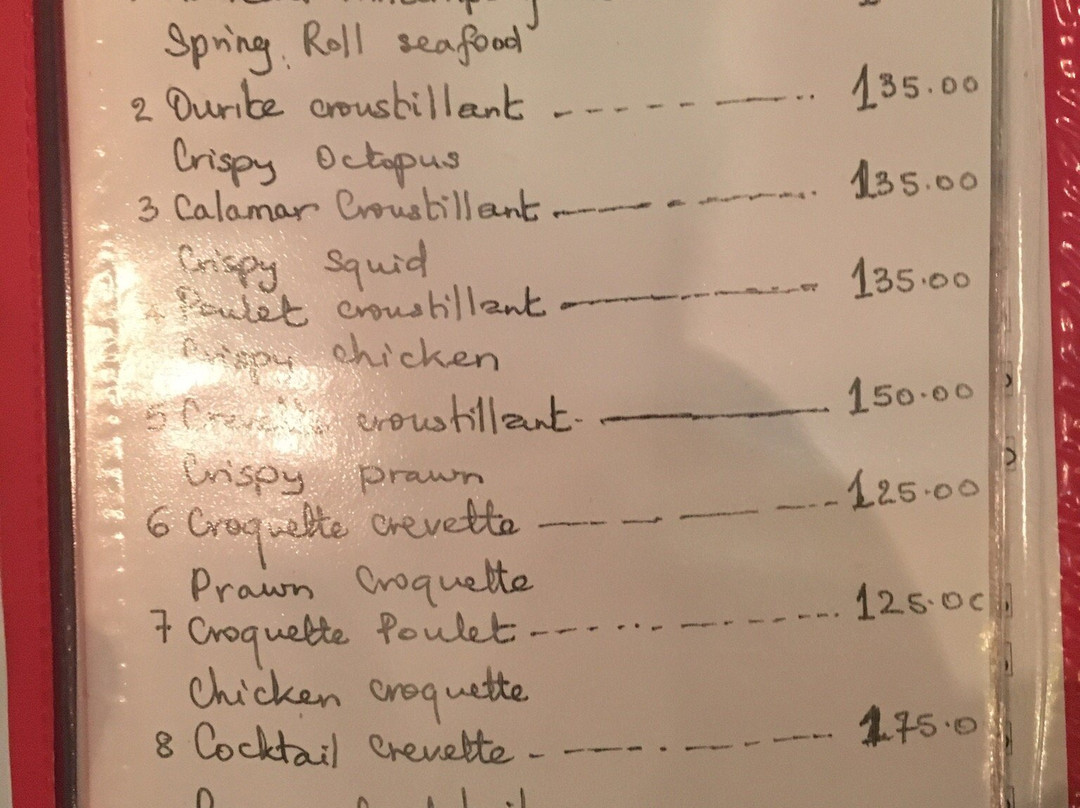 Spring Roll seafood
2 Ourite croustillant 135.00
Crispy Octopus
3 Calamar Croustillant 135.00
Crispy Squid
4 Poulet croustillant 135.00
Crispy chicken
5 Crevette croustillant 150.00
Crispy prawn
6 Croquette crevette 125.00
Prawn Croquette
7 Croquette Poulet 125.00
Chicken croquette
8 Cocktail crevette 175.0